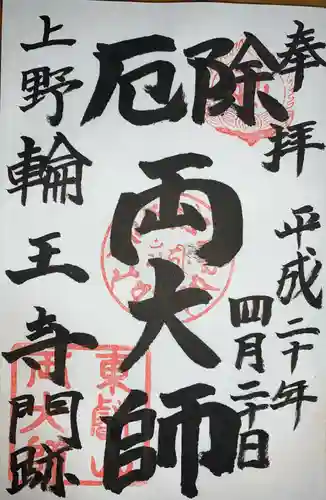 奉拝
平成二十年
四月二十日
除厄
両大師
上野輪王寺門跡